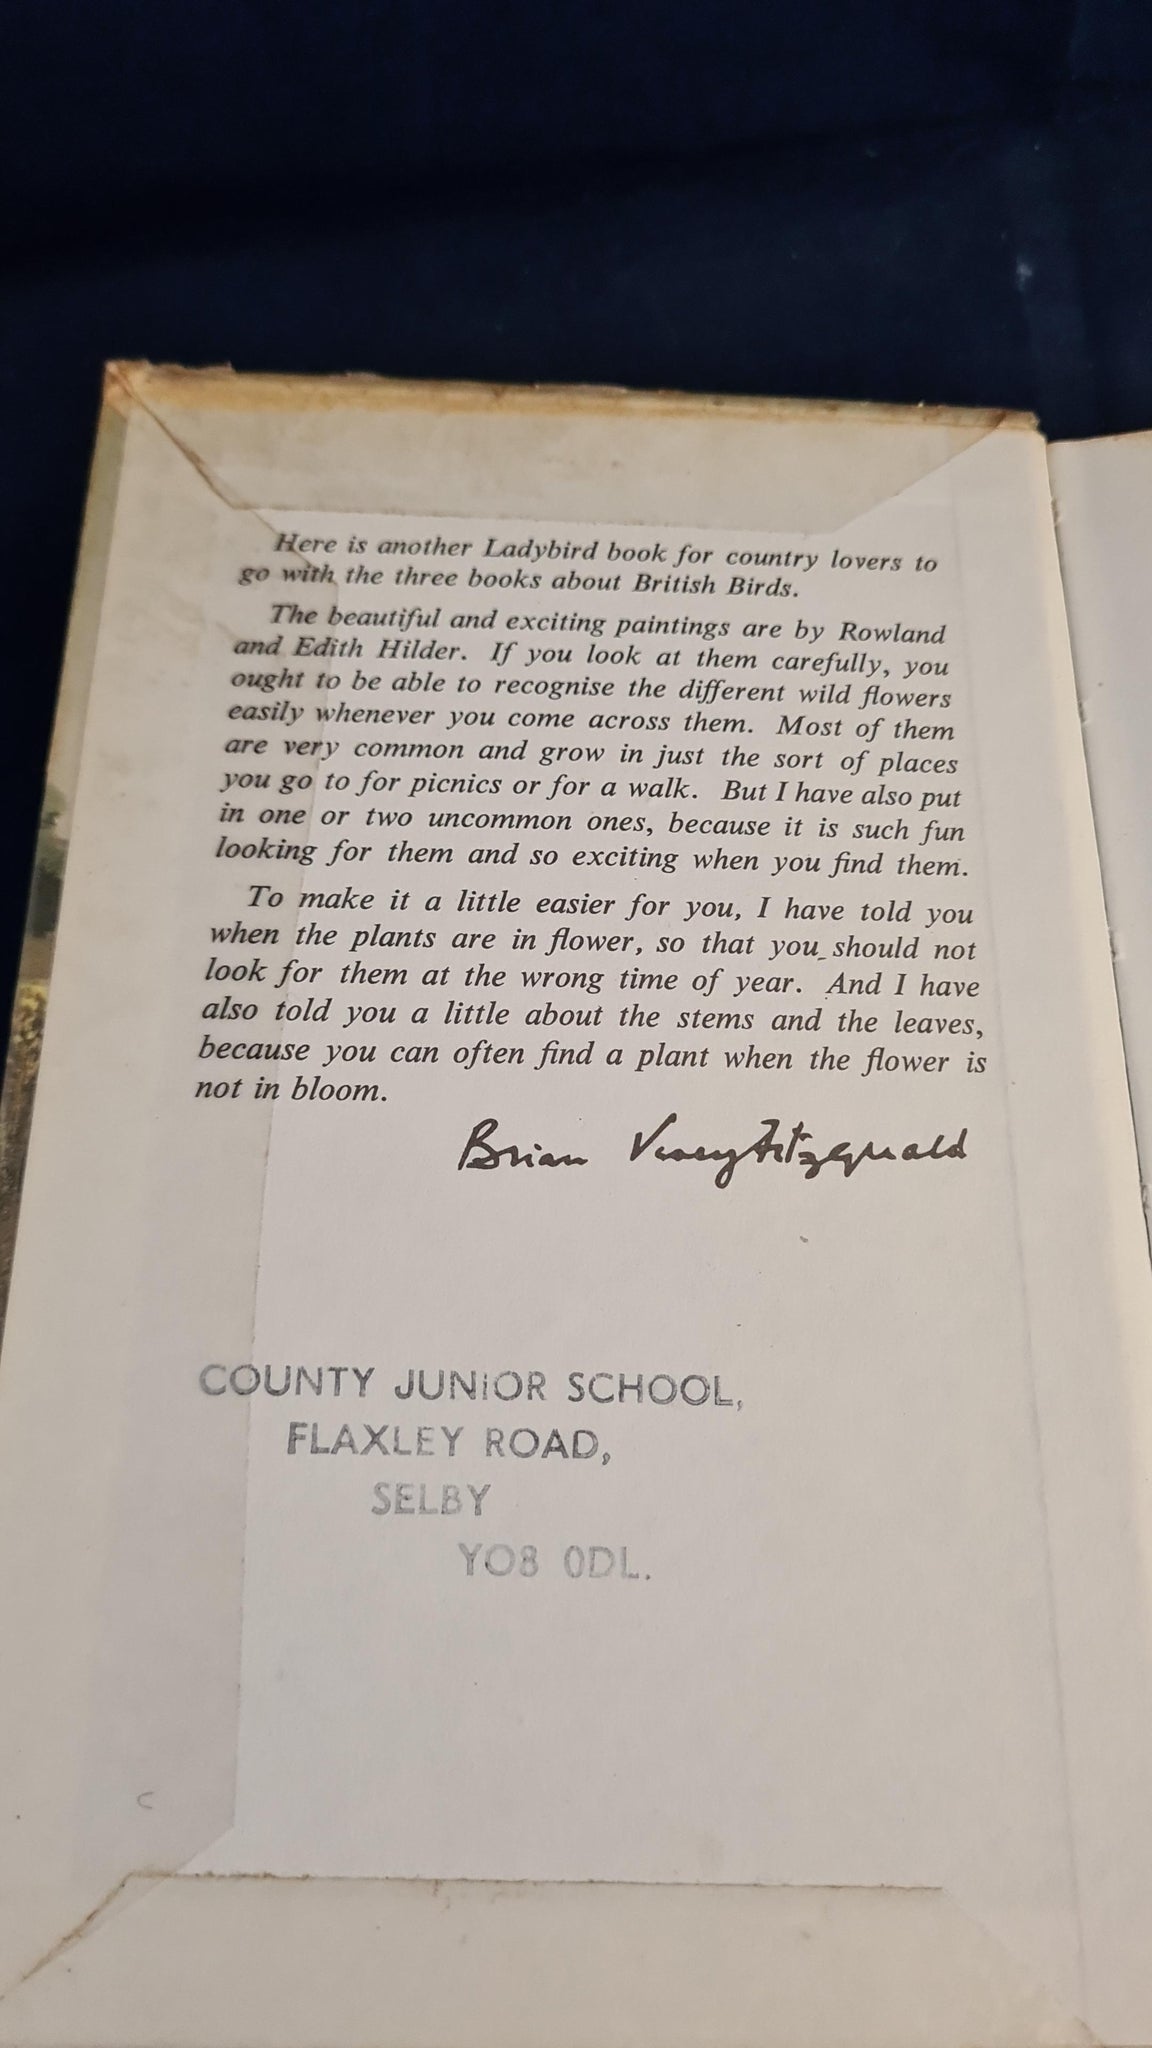 Here is another Ladybird book for country lovers to
go with the three books about British Birds.
The beautiful and exciting paintings are by Rowland
and Edith Hilder. If you look at them carefully, you
ought to be able to recognise the different wild flowers
easily whenever you come across them. Most of them
are very common and grow in just the sort of places
you go to for picnics or for a walk. But I have also put
in one or two uncommon ones, because it is such fun
looking for them and so exciting when you find them.
To make it a little easier for you, I have told you
when the plants are in flower, so that you should not
look for them at the wrong time of year. And I have
also told you a little about the stems and the leaves,
because you can often find a plant when the flower is
not in bloom.
Brian Vesey Fitzgerald
COUNTY JUNIOR SCHOOL,
FLAXLEY ROAD,
SELBY
YO8 0DL.